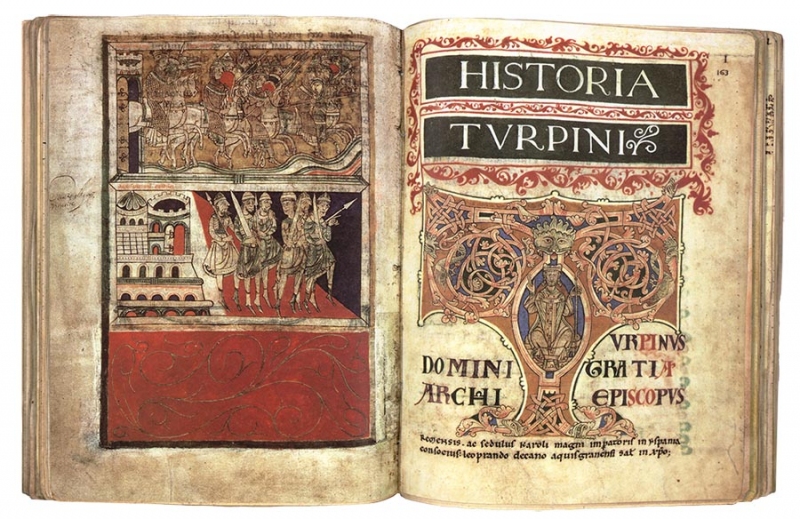 I
163
HISTORIA
TVRPINI
TVRPINVS
DOMINI GRATIA
ARCHI EPISCOPVS
REMENSIS. ac sedulus karoli magni impatoris in hispania
consocius. leoprando decano aquisgranensi sal in xpo;